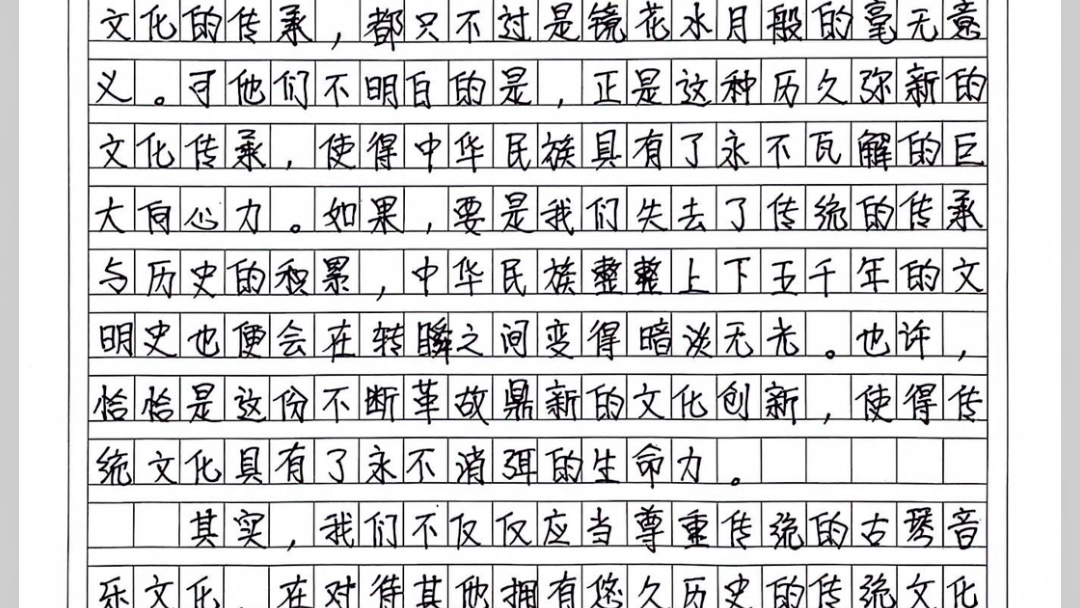 文化的传承，都只不过是镜花水月般的毫无意
义。可他们不明白的是，正是这种历久弥新的
文化传承，使得中华民族具有了永不瓦解的巨
大向心力。如果，要是我们失去了传统的传承
与历史的积累，中华民族整整上下五千年的文
明史也便会在转瞬之间变得暗淡无光。也许，
恰恰是这份不断革故鼎新的文化创新，使得传
统文化具有了永不消弭的生命力。
其实，我们不仅仅应当尊重传统的古琴音
乐文化，在对待其他拥有悠久历史的传统文化